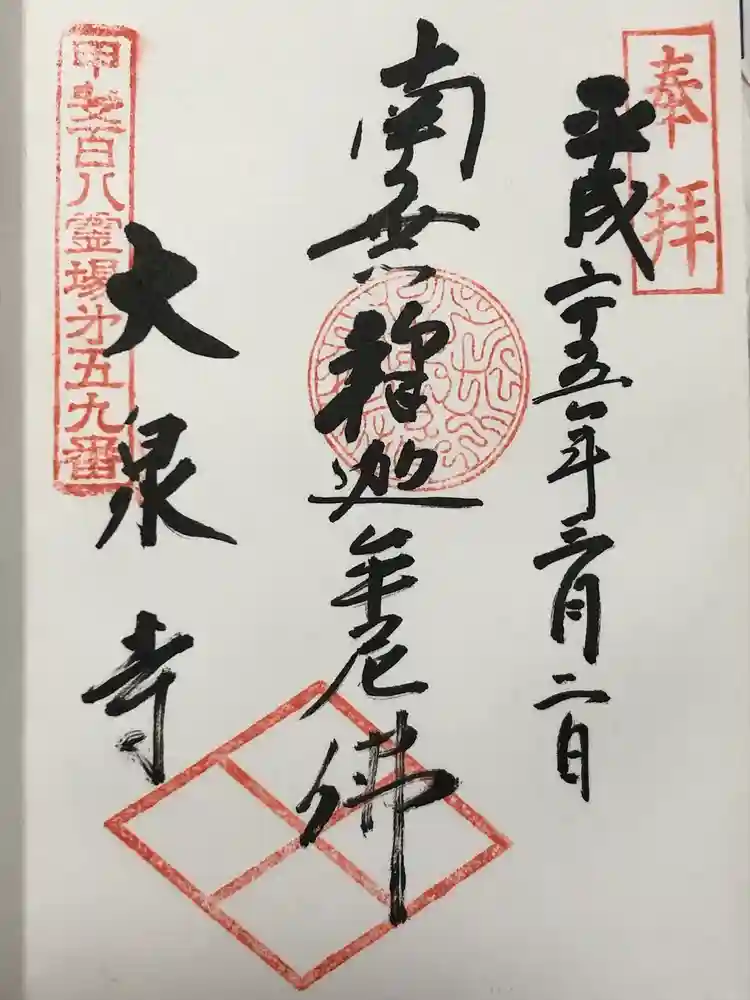 奉拝
平成二十五年三月二日
南無釋迦牟尼佛
大泉寺
甲斐百八霊場第五九番